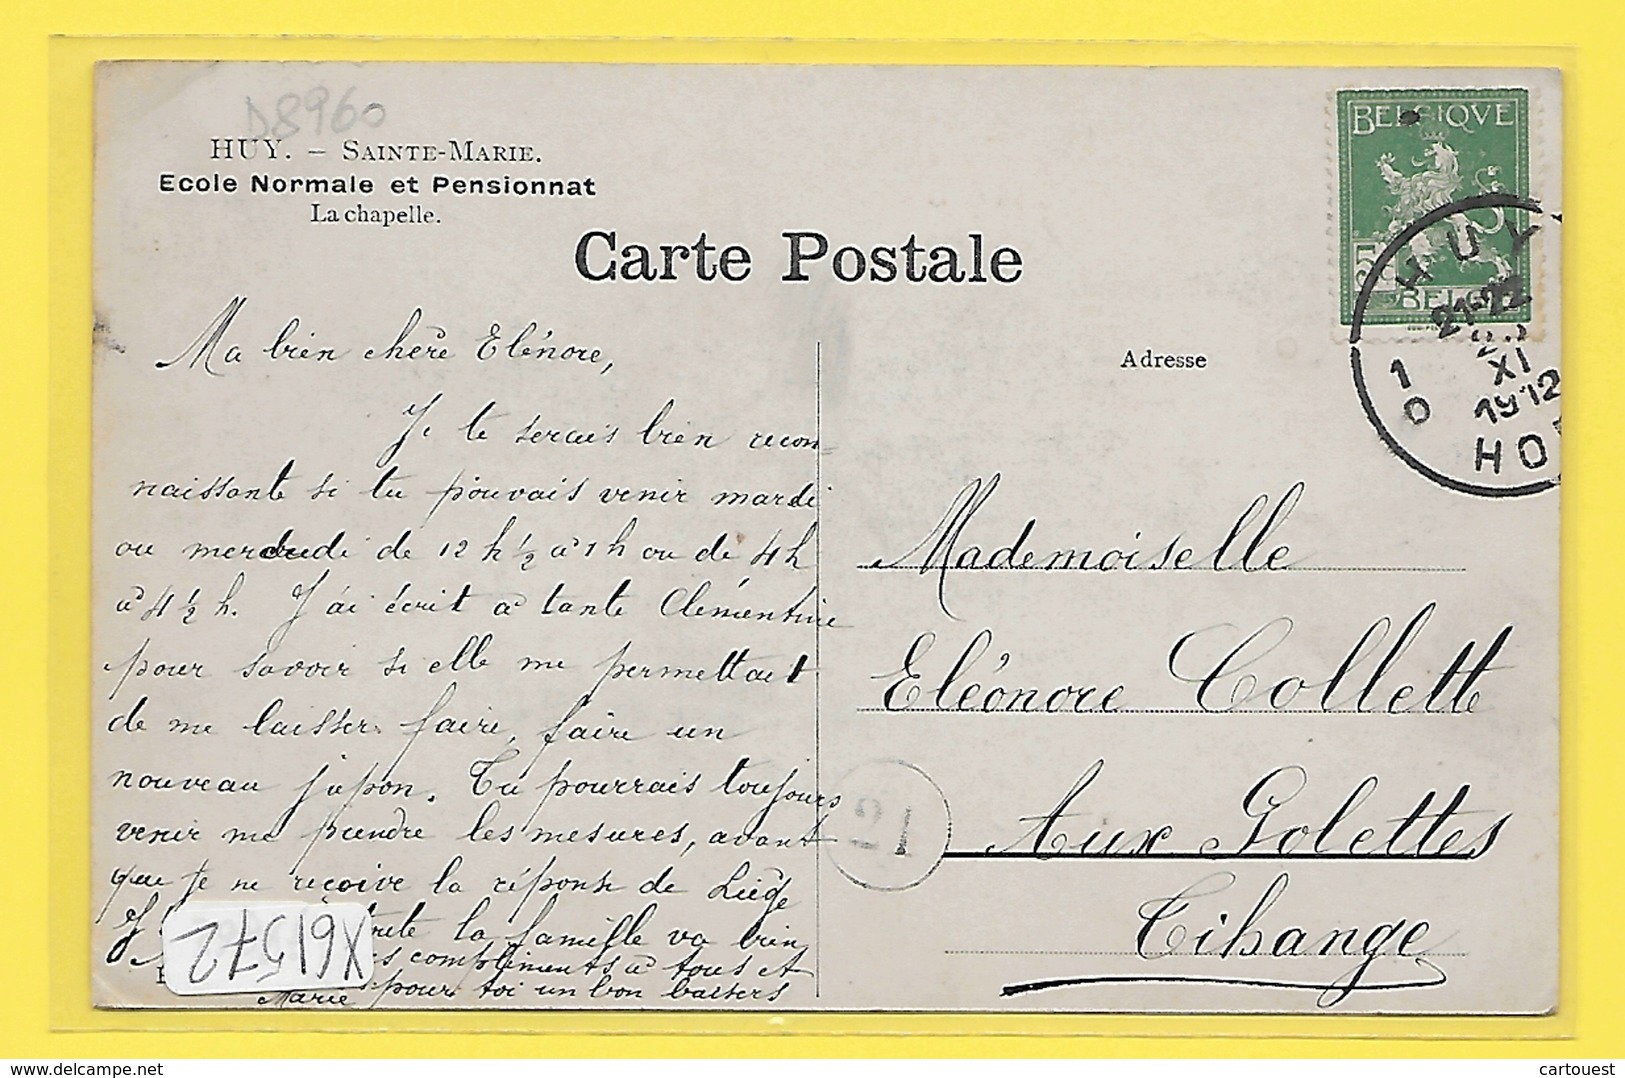 D8960
HUY. – SAINTE-MARIE.
Ecole Normale et Pensionnat
La chapelle.
Carte Postale
BELGIQVE
5
BELG
HUY
21-22
XI
1912
1
D
HO
Adresse
Ma bien chère Elénore,
Je te serais bien recon-
naissante si tu pouvais venir mardi
ou mercredi de 12 h ½ à 1 h ou de 4 h
à 4 ½ h. J'ai écrit à tante Clémentine
pour savoir si elle me permettait
de me laisser faire, faire un
nouveau jupon. Tu pourrais toujours
venir me prendre les mesures, avant
que je ne reçoive la réponse de Liège
la famille va bien
compliments à tous et
pour toi un bon baisers
Marie
Mademoiselle
Eléonore Collette
Aux Golettes
Tihange
1
X61572
delcampe.net
cartouest